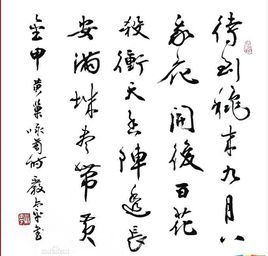 待到秋来九月八
我花開後百花
殺衝天香陣透長
安滿城尽帶黄
金甲 黄巢咏菊詩